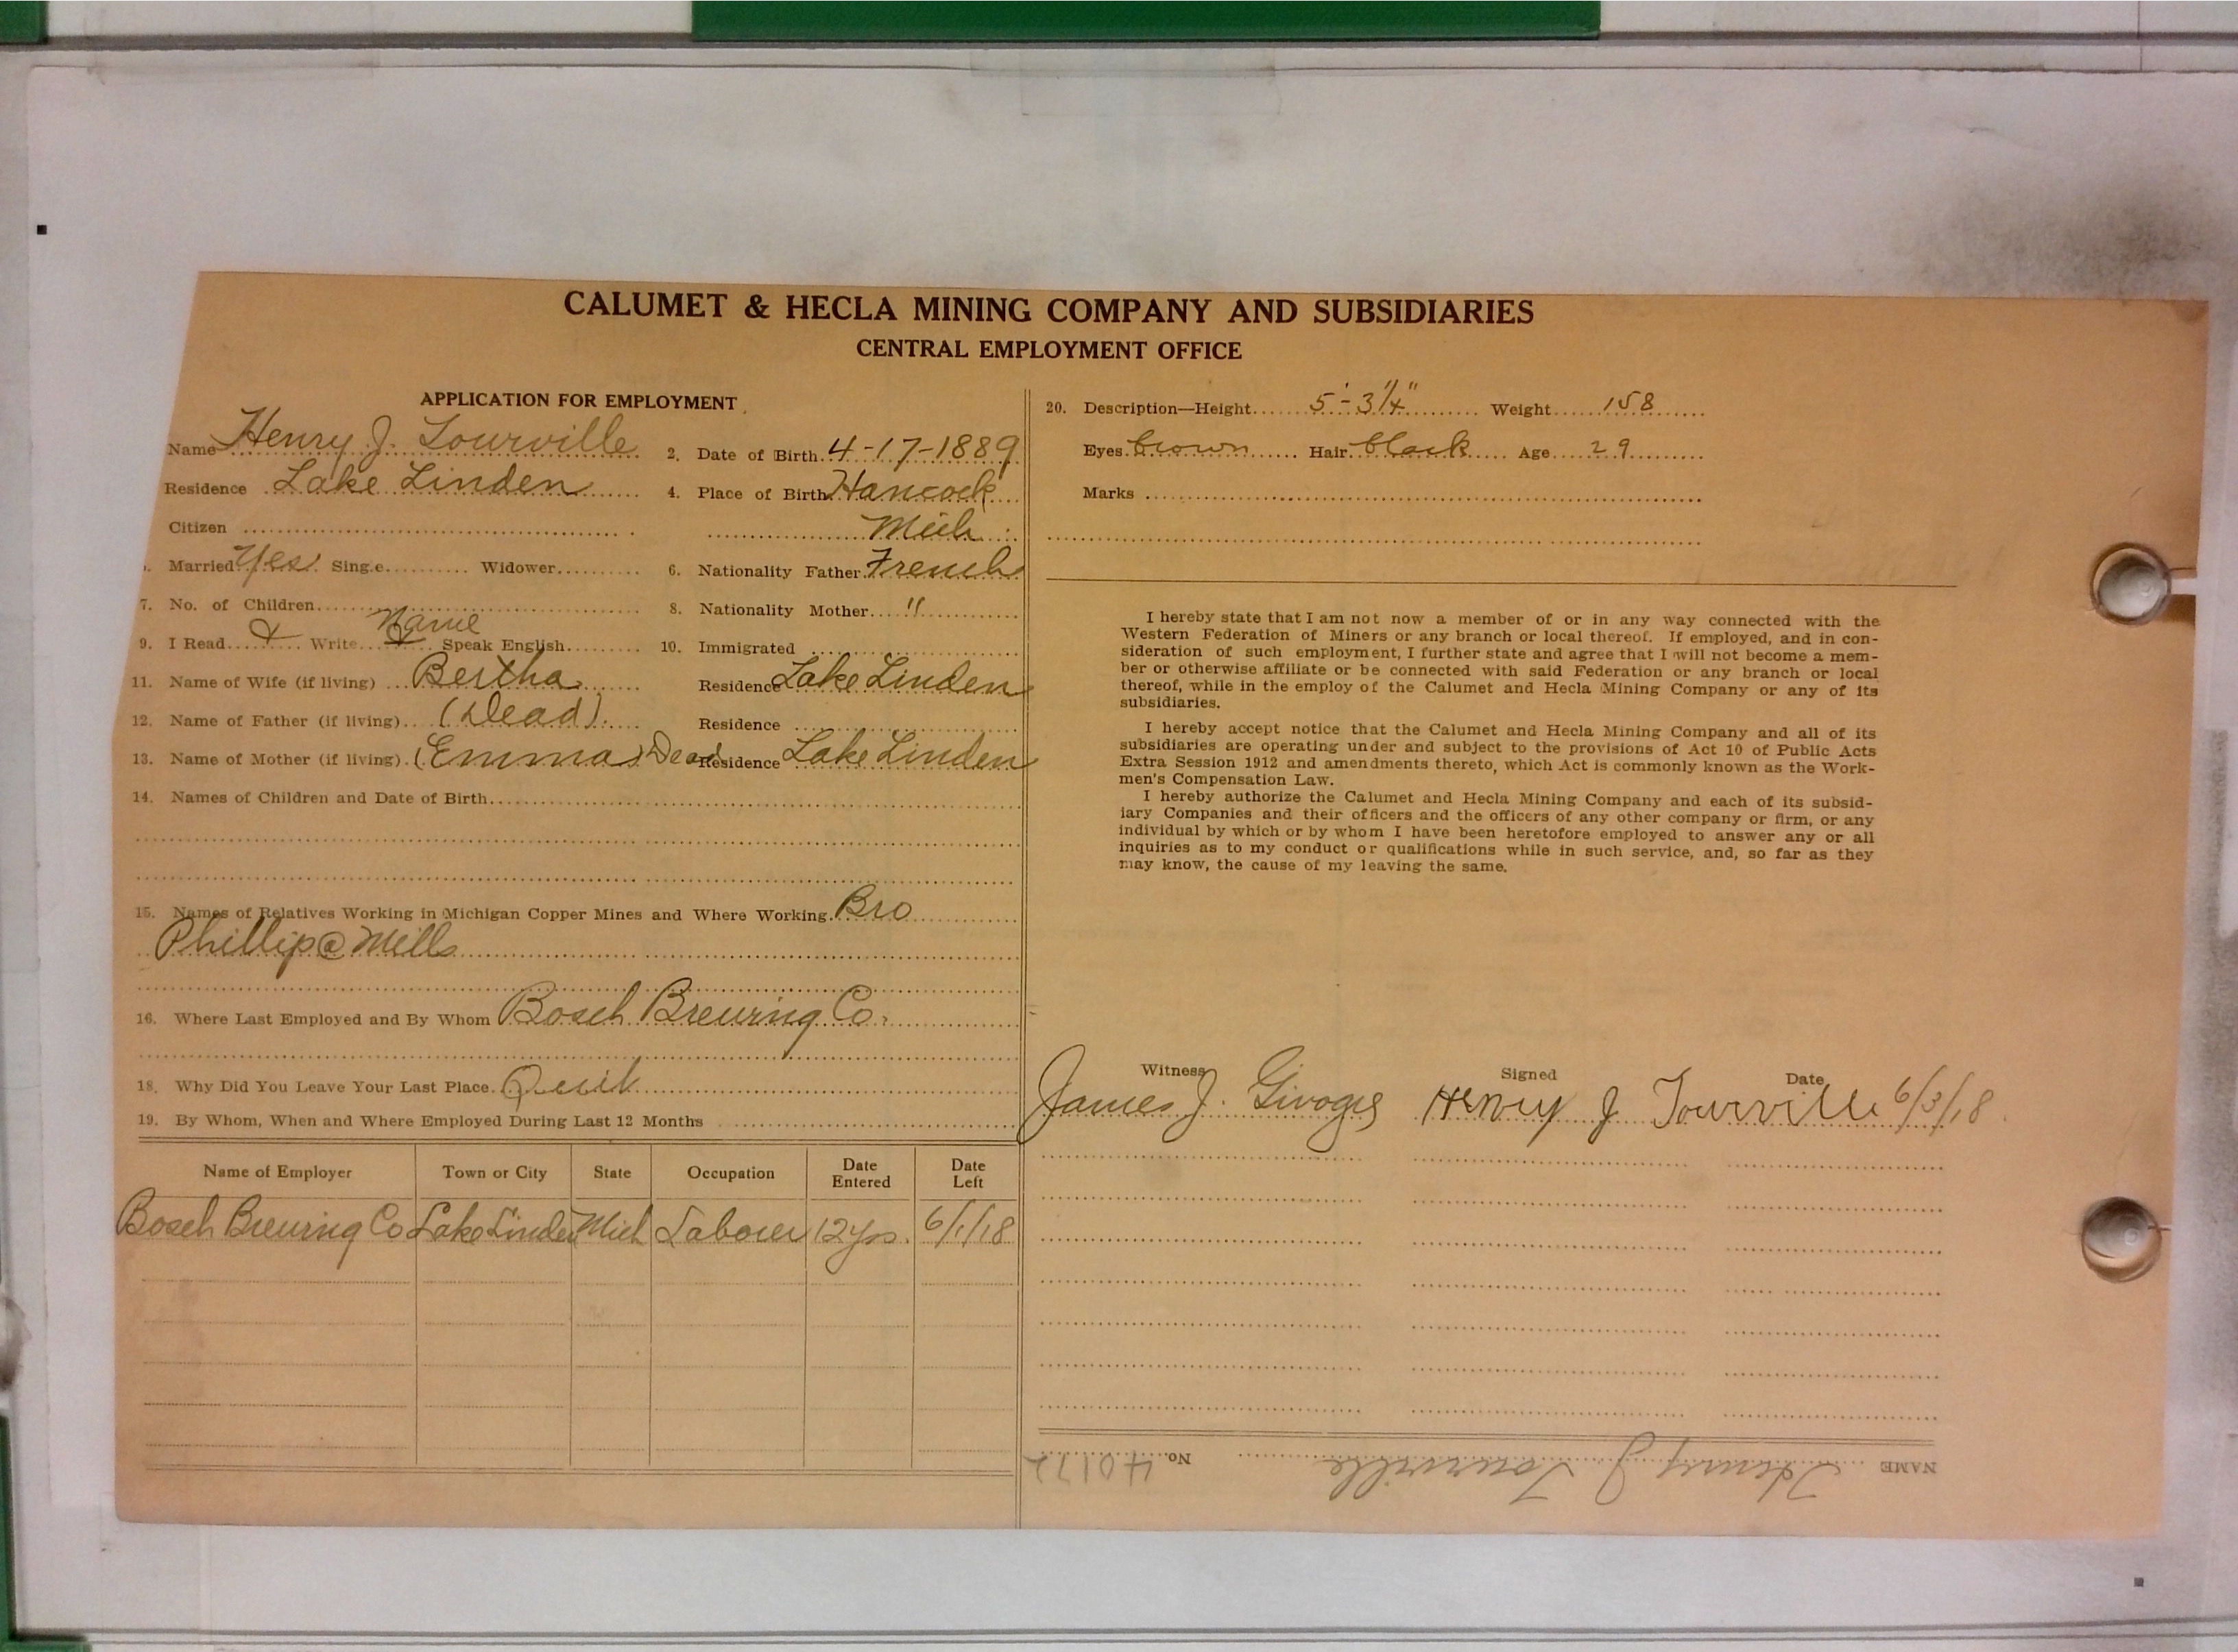 CALUMET & HECLA MINING COMPANY AND SUBSIDIARIES
CENTRAL EMPLOYMENT OFFICE
APPLICATION FOR EMPLOYMENT
Name Henry J. Tourville 2. Date of Birth 4-17-1889
Residence Lake Linden 4. Place of Birth Hancock
Citizen Mich
Married Yes Sing.e Widower 6. Nationality Father French
7. No. of Children 8. Nationality Mother "
Name
9. I Read Write Speak English 10. Immigrated
11. Name of Wife (if living) Bertha Residence Lake Linden
12. Name of Father (if living) (Dead) Residence
13. Name of Mother (if living) (Emma) Dead Residence Lake Linden
14. Names of Children and Date of Birth
15. Names of Relatives Working in Michigan Copper Mines and Where Working Bro
Phillip @ Mills
16. Where Last Employed and By Whom Bosch Brewing Co.
18. Why Did You Leave Your Last Place Quit
19. By Whom, When and Where Employed During Last 12 Months
Name of Employer Town or City State Occupation Date Entered Date Left
Bosch Brewing Co Lake Linden Mich Laborer 12 yrs. 6/1/18
20. Description—Height 5'-3 1/4" Weight 158
Eyes brown Hair black Age 29
Marks
I hereby state that I am not now a member of or in any way connected with the
Western Federation of Miners or any branch or local thereof. If employed, and in con-
sideration of such employment, I further state and agree that I will not become a mem-
ber or otherwise affiliate or be connected with said Federation or any branch or local
thereof, while in the employ of the Calumet and Hecla Mining Company or any of its
subsidiaries.
I hereby accept notice that the Calumet and Hecla Mining Company and all of its
subsidiaries are operating under and subject to the provisions of Act 10 of Public Acts
Extra Session 1912 and amendments thereto, which Act is commonly known as the Work-
men's Compensation Law.
I hereby authorize the Calumet and Hecla Mining Company and each of its subsid-
iary Companies and their officers and the officers of any other company or firm, or any
individual by which or by whom I have been heretofore employed to answer any or all
inquiries as to my conduct or qualifications while in such service, and, so far as they
may know, the cause of my leaving the same.
Witness Signed Date
James J. Henry J Tourville 6/3/18
NAME Henry J Tourville No. 40172